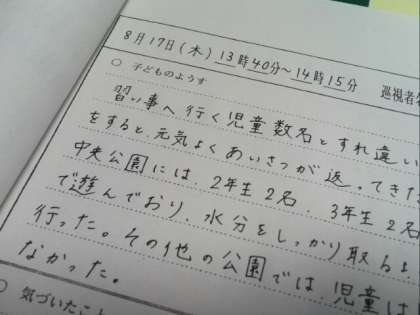 8月17日(木) 13時40分~14時15分 巡視者
○ 子どものようす
習い事へ行く児童数名とすれ違い
をすると、元気よくあいさつが返ってきた
中央公園には、2年生2名、3年生2名
で遊んでおり、水分をしっかり取るよ
行った。その他の公園では、児童は
なかった。
○ 気づいたこと